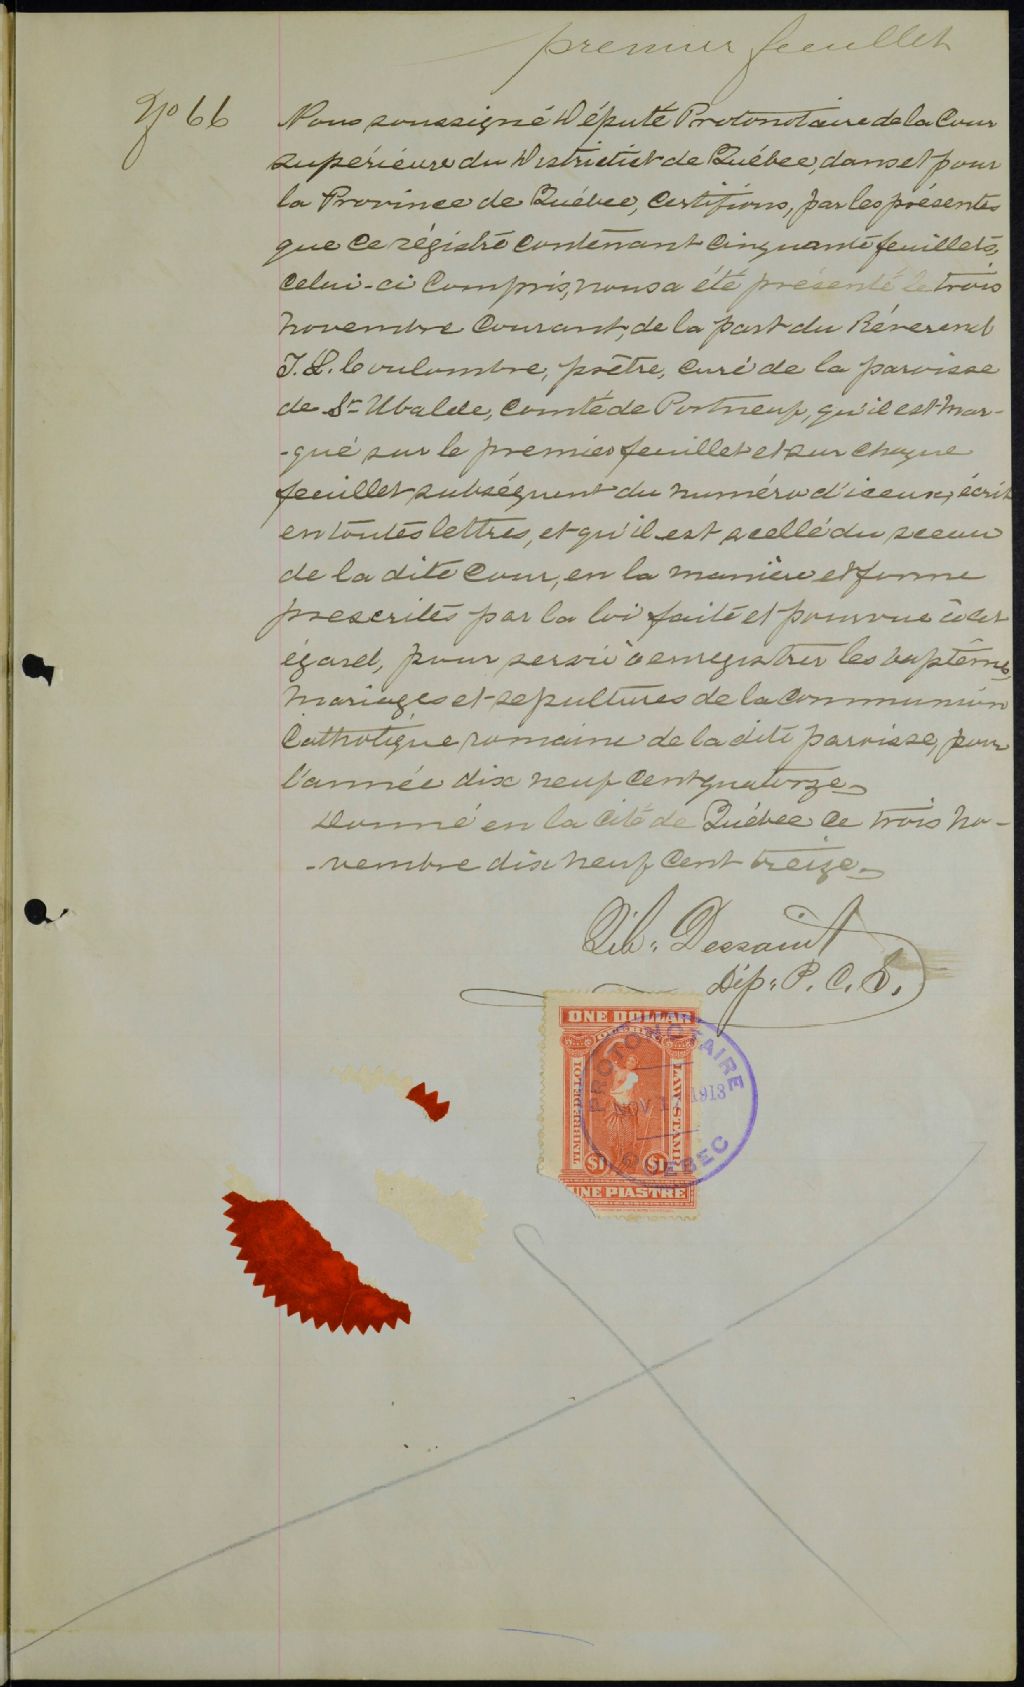 premier feuillet
No 66
Nous soussigné Député Protonotaire de la Cour
supérieure du District de Québec, dans et pour
la Province de Québec, Certifions, par les présentes
que ce régistre contenant cinquante feuillets,
celui-ci compris, nous a été présenté le trois
novembre courant, de la part du Révérend
J. L. Coulombre, prêtre, curé de la paroisse
de St Ubalde, comté de Portneuf, qu'il est mar-
-qué sur le premier feuillet et sur chaque
feuillet subséquent du numéro d'iceux, écrit
en toutes lettres, et qu'il est scellé du sceau
de la dite Cour, en la manière et forme
prescrites par la loi faite et pourvue à cet
égard, pour servir à enregistrer les baptêmes,
mariages et sepultures de la Communion
Catholique romaine de la dite paroisse, pour
l'année dix neuf cent quatorze.
Donné en la Cité de Québec ce trois no-
-vembre dix neuf cent treize.
Dessaint
Dép. P. C. S.
ONE DOLLAR
TIMBRE DE LOI
LAW STAMP
$1 $1
UNE PIASTRE
PROTONOTAIRE
NOV 1913
QUEBEC